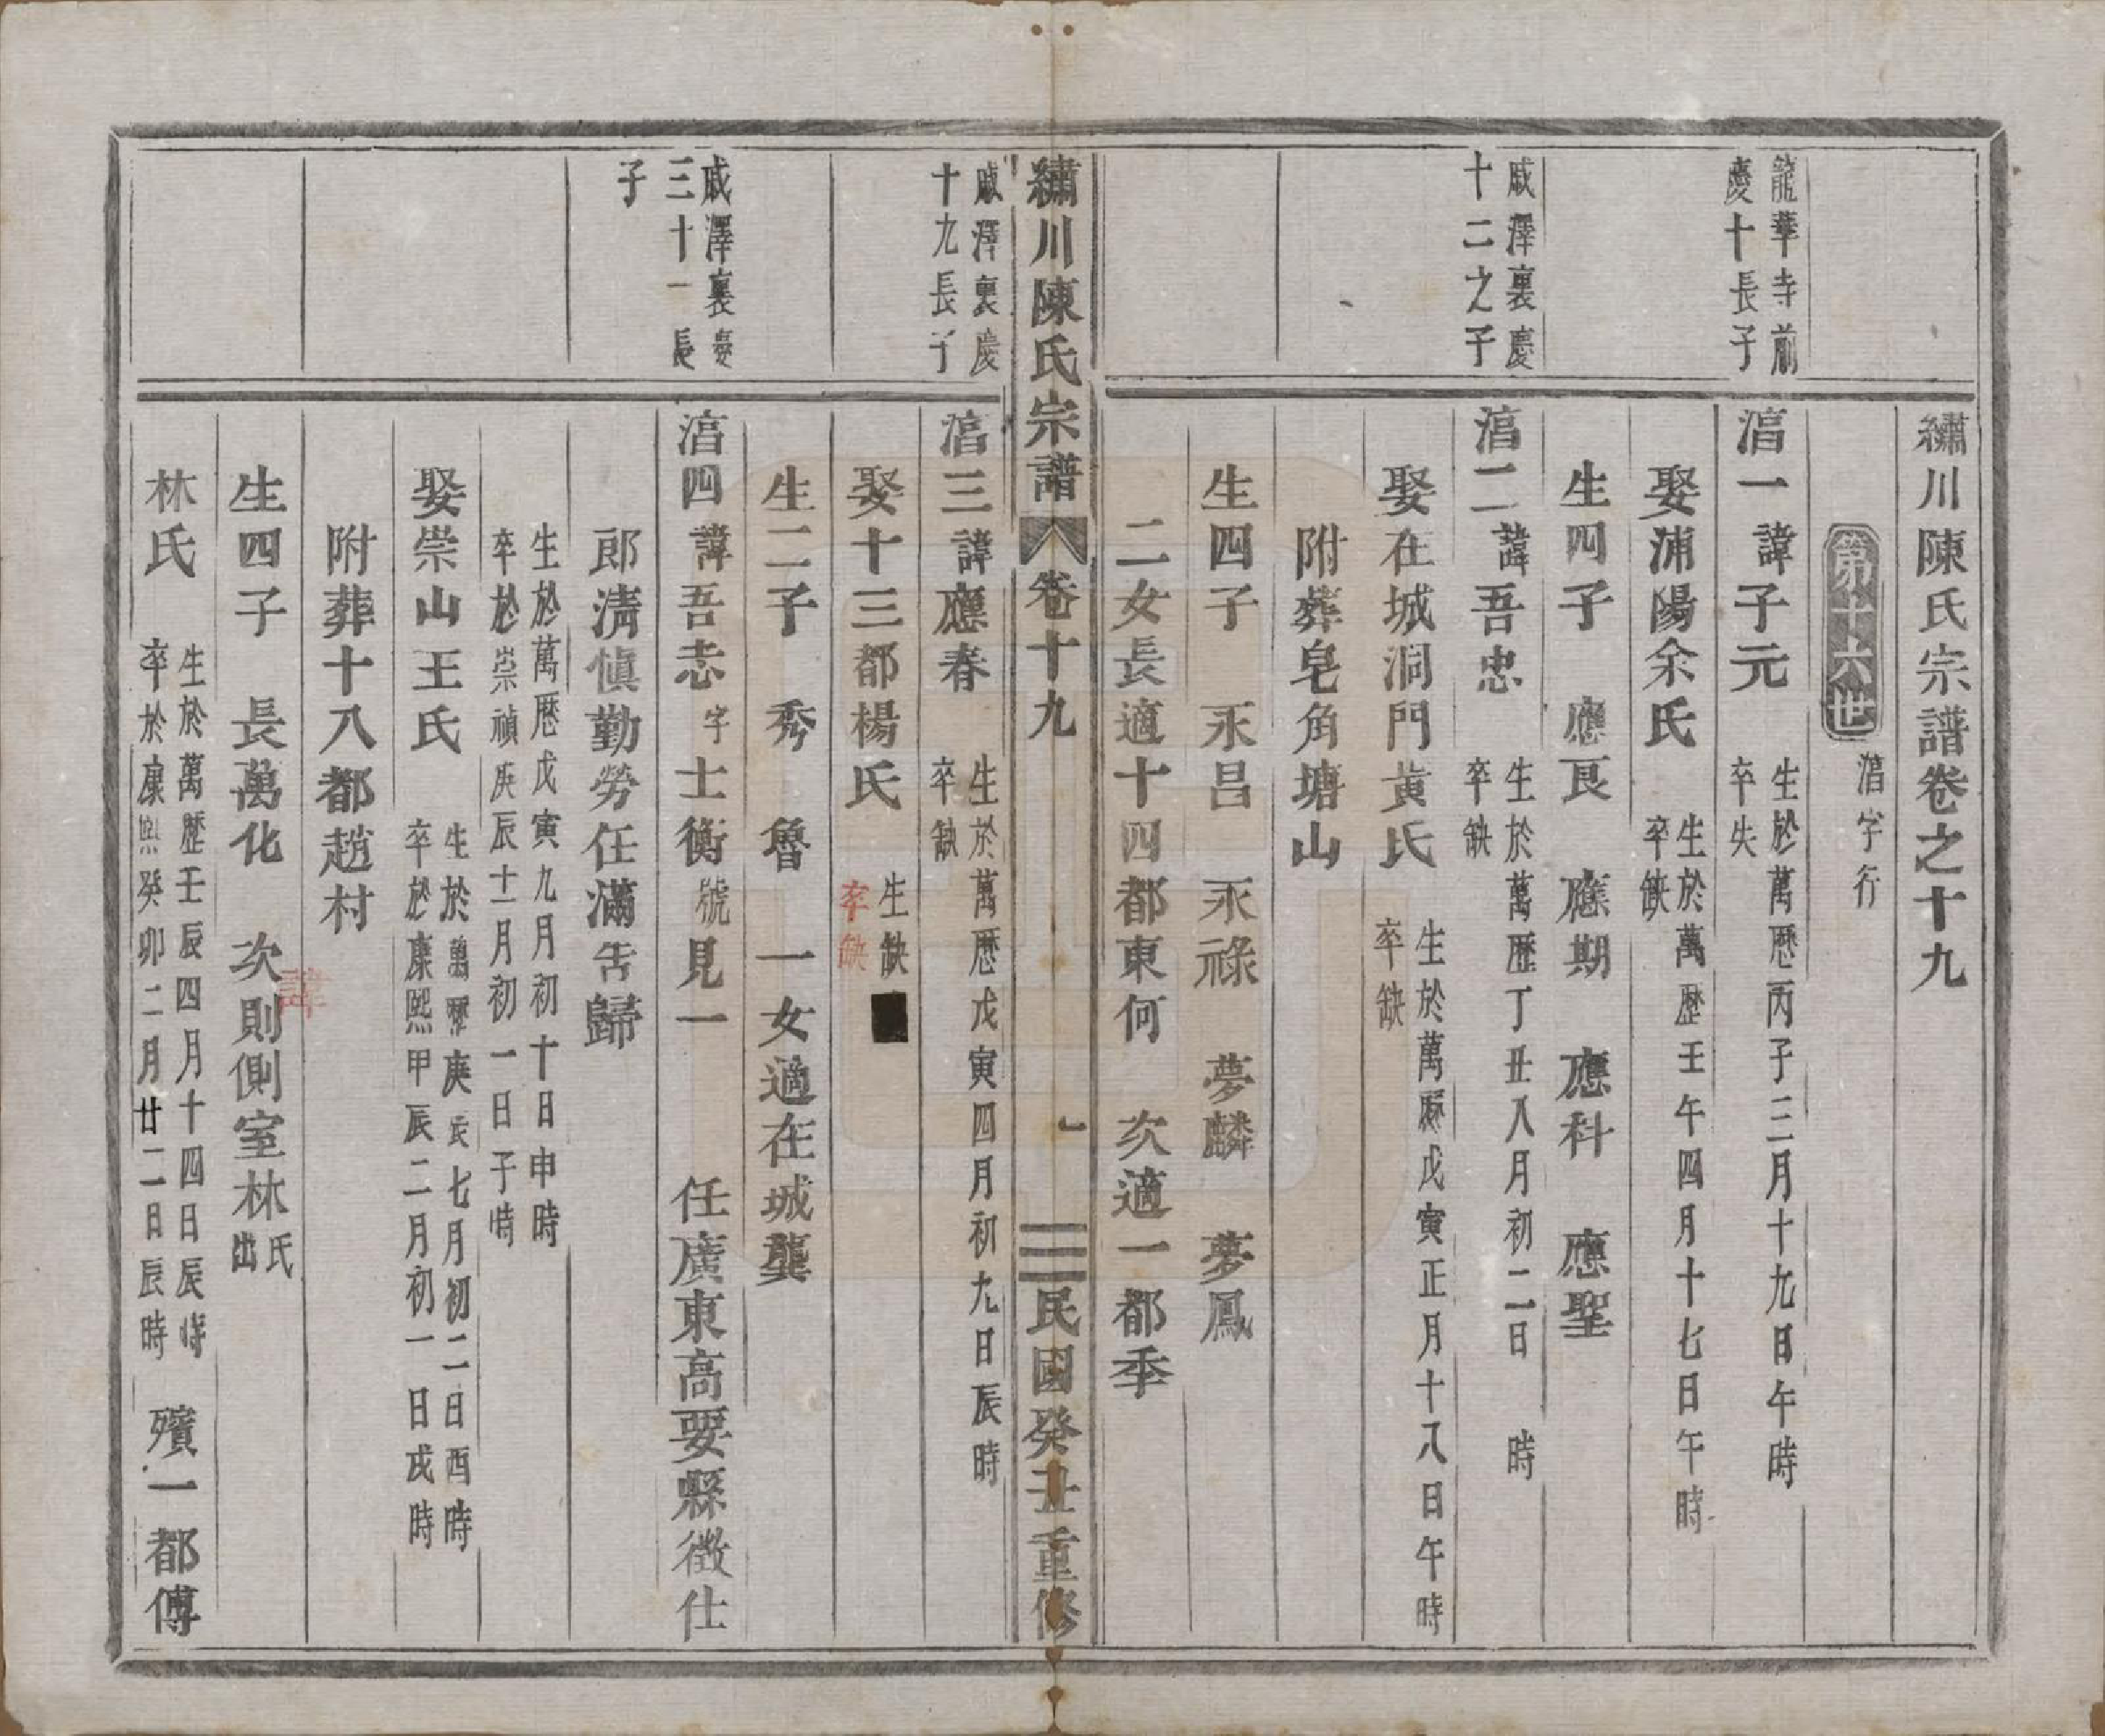 繡川陳氏宗譜卷之十九
第十六世 湻字行
龍華寺前
慶十長子
湻一 諱子元 生於萬厯丙子三月十九日午時
卒失
娶浦陽余氏 生於萬歷壬午四月十七日午時
卒缺
生四子 應良 應期 應科 應聖
戚澤裏慶
十二之子
湻二 諱吾忠 生於萬歷丁丑八月初二日 時
卒缺
娶在城洞門黃氏 生於萬厯戊寅正月十八日午時
卒缺
附葬皂角塘山
生四子 永昌 永祿 夢麟 夢鳳
二女長適十四都東何 次適一都季
繡川陳氏宗譜 卷十九 一 民國癸丑重修
戚澤裏慶
十九長子
湻三 諱應春 生於萬厯戊寅四月初九日辰時
卒缺
娶十三都楊氏 生缺
卒缺
生二子 秀 魯 一女適在城龔
戚澤裏慶
三十一長
子
湻四 諱吾志 字士衡 號見一 任廣東高要縣徵仕
郎淸慎勤勞任滿告歸
生於萬厯戊寅九月初十日申時
卒於崇禎庚辰十一月初一日子時
娶崇山王氏 生於萬歷庚辰七月初二日酉時
卒於康熙甲辰二月初一日戌時
附葬十八都趙村
生四子 長萬化 次則側室林氏出
諱
林氏 生於萬歷壬辰四月十四日辰時
卒於康熙癸卯二月廿二日辰時
殯一都傅